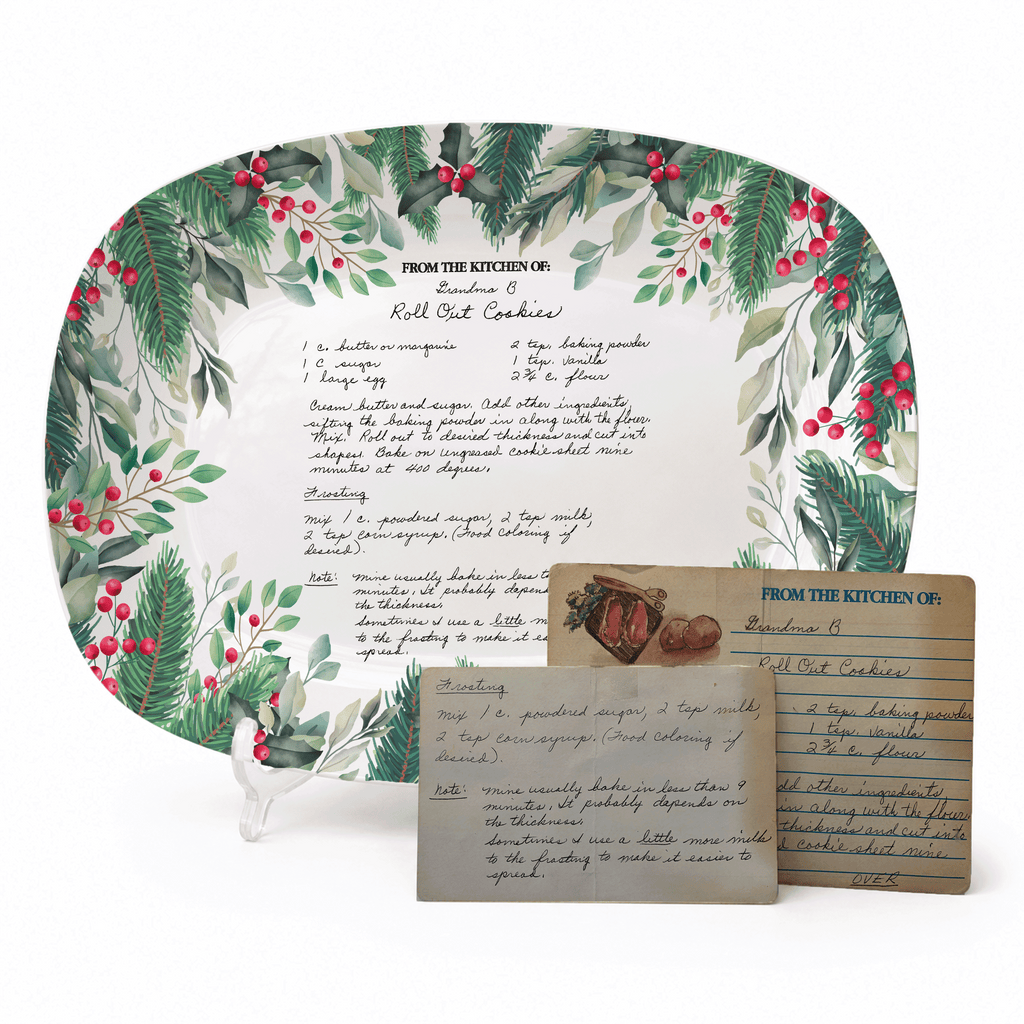 FROM THE KITCHEN OF:
Grandma B
Roll Out Cookies
1 c. butter or margarine
1 c sugar
1 large egg
2 tsp. baking powder
1 tsp. vanilla
2 3/4 c. flour
Cream butter and sugar. Add other ingredients,
sifting the baking powder in along with the flour.
Mix. Roll out to desired thickness and cut into
shapes. Bake on ungreased cookie sheet nine
minutes at 400 degrees.
Frosting
Mix 1 c. powdered sugar, 2 tsp milk,
2 tsp corn syrup. (Food coloring if
desired).
Note: Mine usually bake in less t
minutes. It probably depend
the thickness.
Sometimes I use a little m
to the frosting to make it ea
spread.
FROM THE KITCHEN OF:
Grandma B
Roll Out Cookies
2 tsp. baking powder
1 tsp. vanilla
2 3/4 c. flour
dd other ingredients
in along with the flour.
thickness and cut into
d cookie sheet nine
OVER
Frosting
Mix 1 c. powdered sugar, 2 tsp milk,
2 tsp corn syrup. (Food coloring if
desired).
Note: Mine usually bake in less than 9
minutes. It probably depends on
the thickness.
Sometimes I use a little more milk
to the frosting to make it easier to
spread.